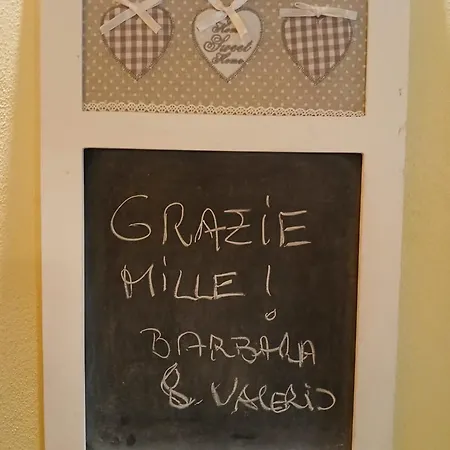 Home
Sweet
Home
GRAZIE
MILLE!
BARBARA
& VALERIO